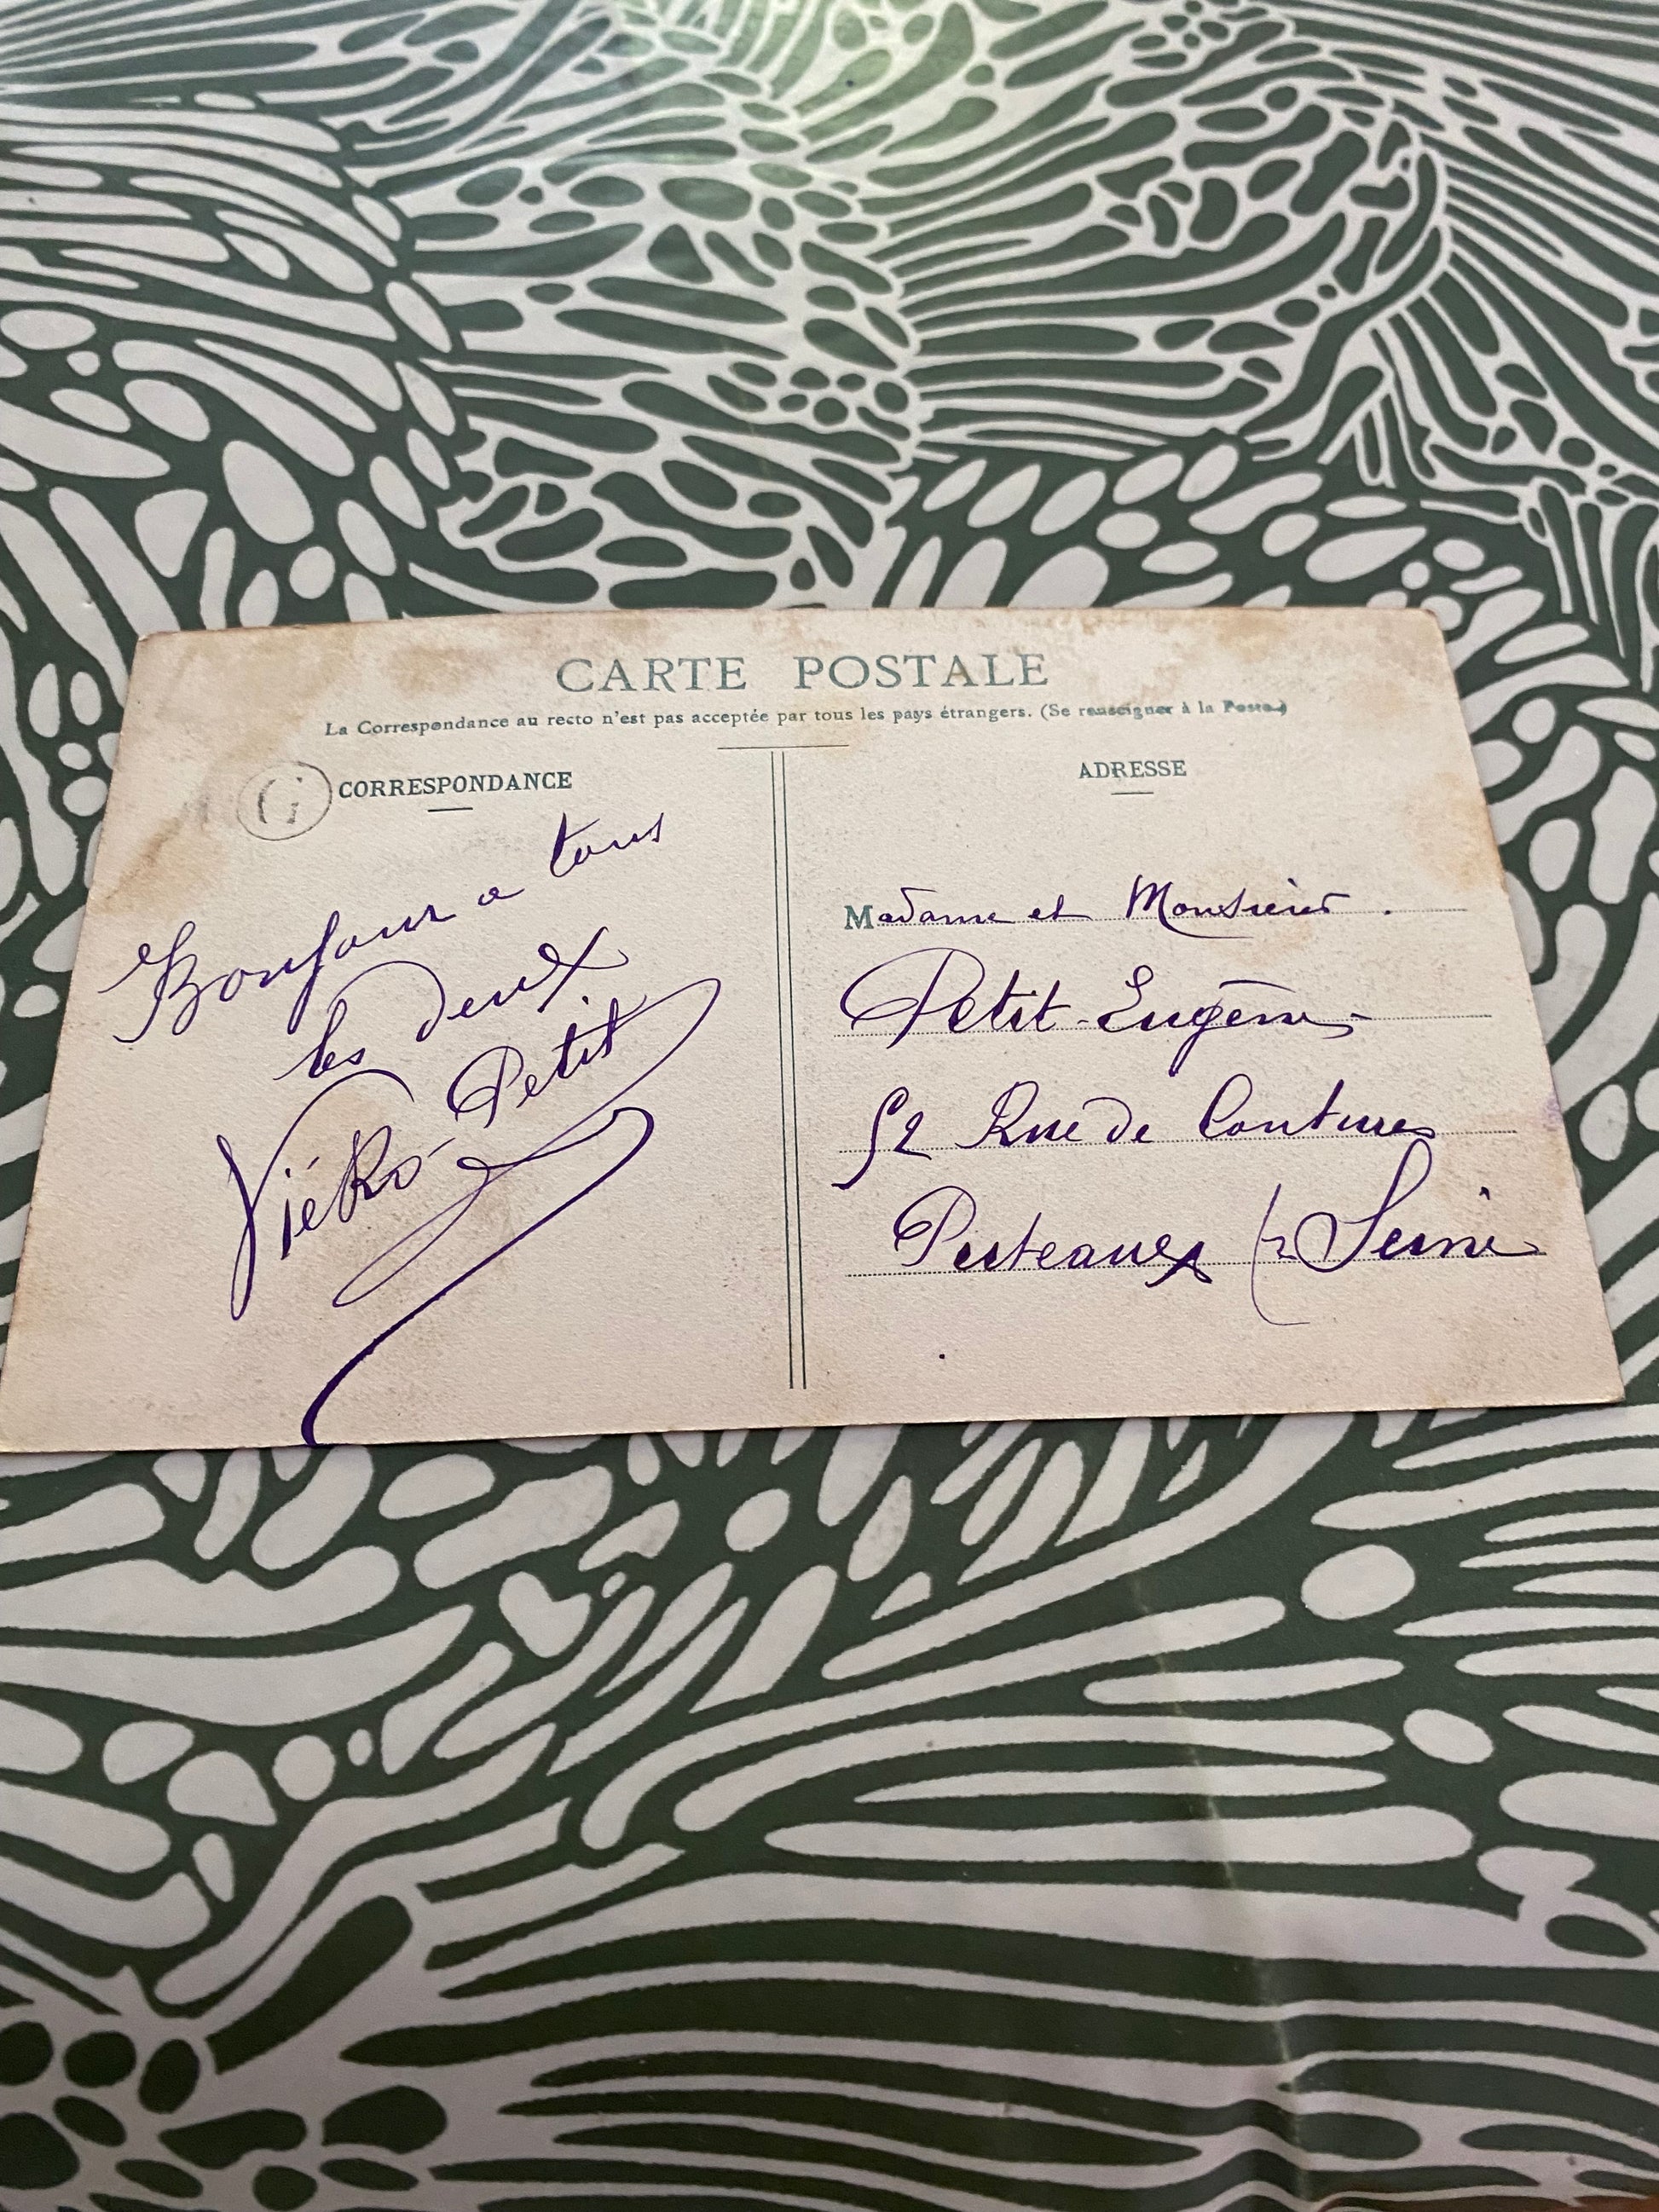 CARTE POSTALE
La Correspondance au recto n'est pas acceptée par tous les pays étrangers. (Se renseigner à la Poste.)
G
CORRESPONDANCE
Bonjour a tous
les deux
Petit
ADRESSE
Madame et Monsieur.
Petit Eugène
52 Rue de Coutures
Puteaux Seine